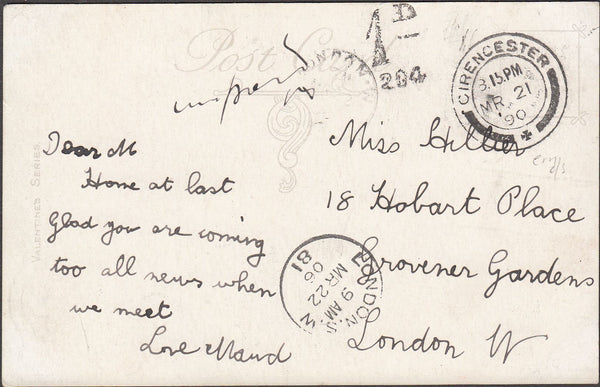 Post Card
VALENTINE'S SERIES
unpaid
LONDON W
1D
204
CIRENCESTER
3.15.PM
MR 21
90
Dear M
Home at last
Glad you are coming
too all news when
we meet
Love Maud
Miss Hillier
18 Hobart Place
Grovener Gardens
London W
LONDON. W
9 AM
MR 22
06
81